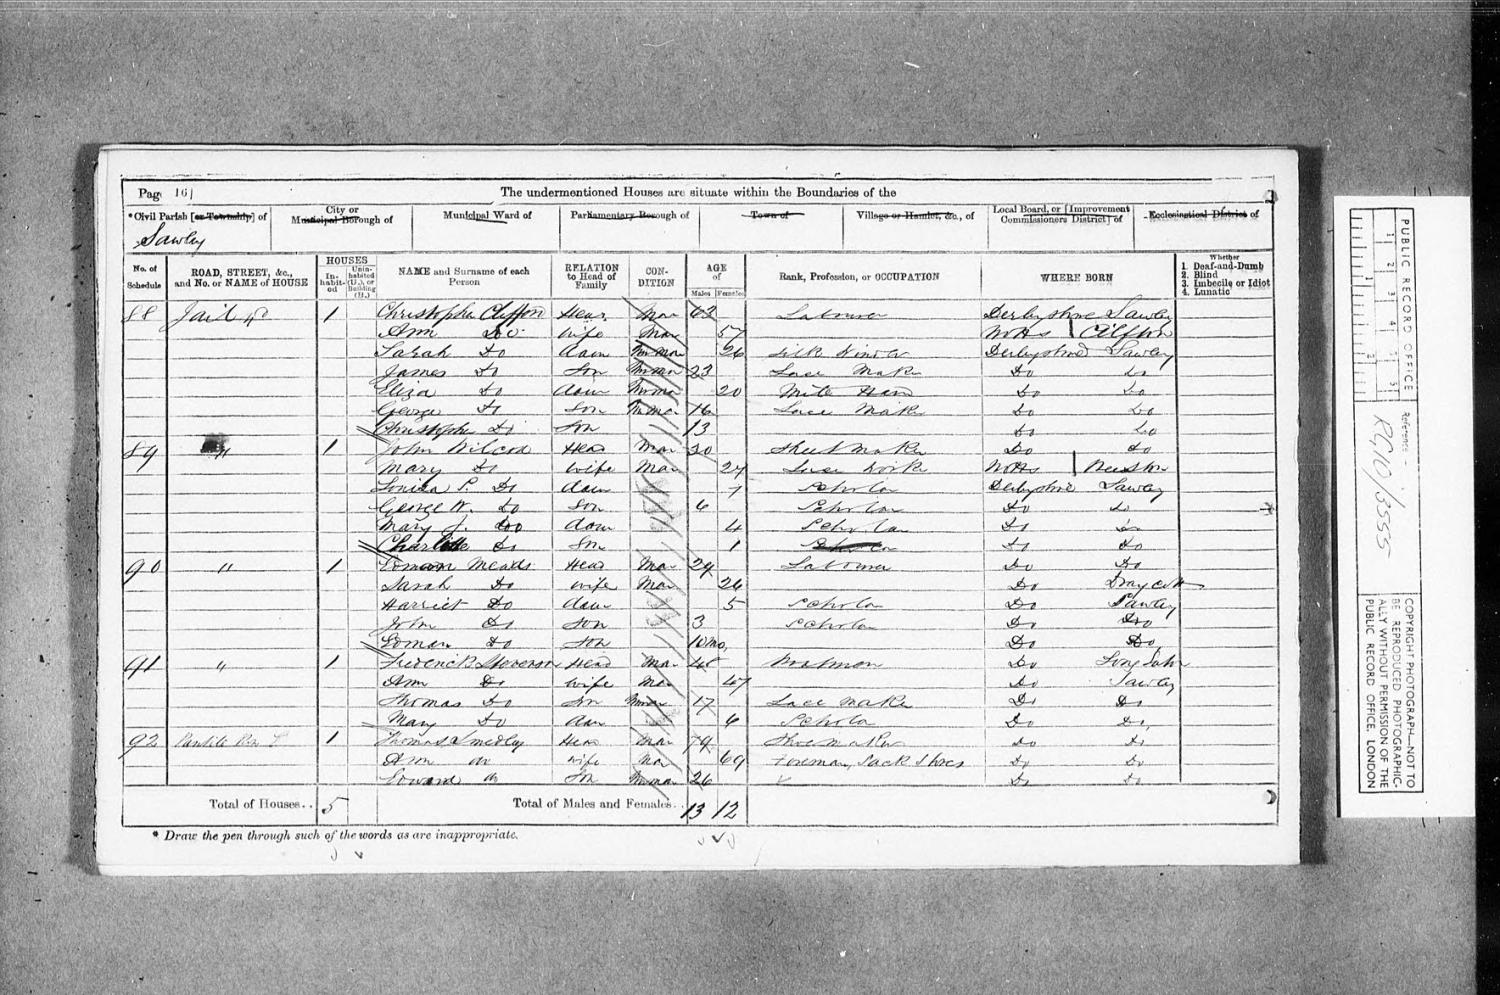 Page 16
The undermentioned Houses are situate within the Boundaries of the
*Civil Parish [or Township] of
City or Municipal Borough of
Municipal Ward of
Parliamentary Borough of
Town of
Village or Hamlet, &c., of
Local Board, or [Improvement Commissioners District] of
Ecclesiastical District of
Sawley
No. of Schedule
ROAD, STREET, &c., and No. or NAME of HOUSE
HOUSES
In-habit-ed
Unin-habited (U.), or Building (B.)
NAME and Surname of each Person
RELATION to Head of Family
CON-DITION
AGE of
Males
Females
Rank, Profession, or OCCUPATION
WHERE BORN
Whether
1. Deaf-and-Dumb
2. Blind
3. Imbecile or Idiot
4. Lunatic
88 1 Christopher Clifford Head Mar 63 Labourer Derbyshire Sawley
Ann Do wife Mar 57 Notts Clifton
Sarah Do daur Unmar 26 Silk Winder Derbyshire Sawley
James Do Son Unmar 23 Lace Maker Do Do
Eliza Do daur Unmar 20 Do Do
George Do Son Unmar 16 Lace Maker Do Do
Christopher Do Son 13 Do Do
89 " 1 John Wilcox Head Mar 30 Maker Do Do
Mary Do wife Mar 27 Lace Notts Beeston
Louisa P. Do daur 7 Scholar Derbyshire Sawley
George W. Do Son 6 Scholar Do Do
Mary J. Do daur 4 Scholar Do Do
Charlotte Do Son 1 Scholar Do Do
90 " 1 Meads Head Mar 29 Labourer Do Do
Sarah Do wife Mar 26 Do Draycott
Harriet Do daur 5 Scholar Do Sawley
John Do Son 3 Scholar Do Do
Do Son 10 mo. Do Do
91 " 1 Frederick Stevenson Head Mar 48 Boatman Do Long Eaton
Ann Do wife Mar 47 Do Sawley
Thomas Do Son Unmar 17 Lace Maker Do Do
Mary Do daur 6 Scholar Do Do
92 1 Thomas Smedley Head Mar 79 Shoemaker Do Do
Ann Do wife Mar 69 Do Do
Edward Do Son Unmar 26 Do Do
Total of Houses.. 5
Total of Males and Females.. 13 12
* Draw the pen through such of the words as are inappropriate.
PUBLIC RECORD OFFICE
Reference :-
RG10/3555
COPYRIGHT PHOTOGRAPH—NOT TO
BE REPRODUCED PHOTOGRAPHIC-
ALLY WITHOUT PERMISSION OF THE
PUBLIC RECORD OFFICE, LONDON